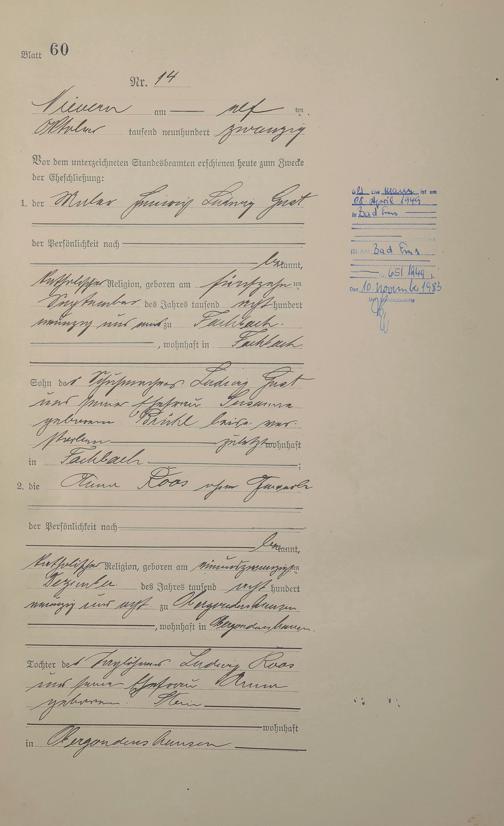 Blatt 60
Nr. 14
Nievern am elf ten
Oktober tausend neunhundert zwanzig
Vor dem unterzeichneten Standesbeamten erschienen heute zum Zwecke
der Eheschließung:
1. der Maler Heinrich Ludwig
der Persönlichkeit nach
bekannt,
katholischer Religion, geboren am fünfzehn ten
September des Jahres tausend acht hundert
neunzig und zu Fachbach
, wohnhaft in Fachbach
Sohn des Schuhmachers Ludwig
und seiner Ehefrau Susanna
geborenen Brühl beide ver-
storben zuletzt wohnhaft
in Fachbach ;
2. die Anna Roos ohne Gewerbe
der Persönlichkeit nach
bekannt,
katholischer Religion, geboren am einundzwanzigsten
Dezember des Jahres tausend acht hundert
neunzig und acht zu Obergondershausen
, wohnhaft in Obergondershausen
Tochter des Taglöhners Ludwig Roos
und seiner Ehefrau Anna
geborenen
wohnhaft
in Obergondershausen
ist am
08. April 1949
in Bad Ems
Bad Ems
65/1949
Den 10. November 1983